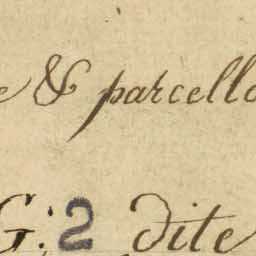 e & parcello
G: 2 dite